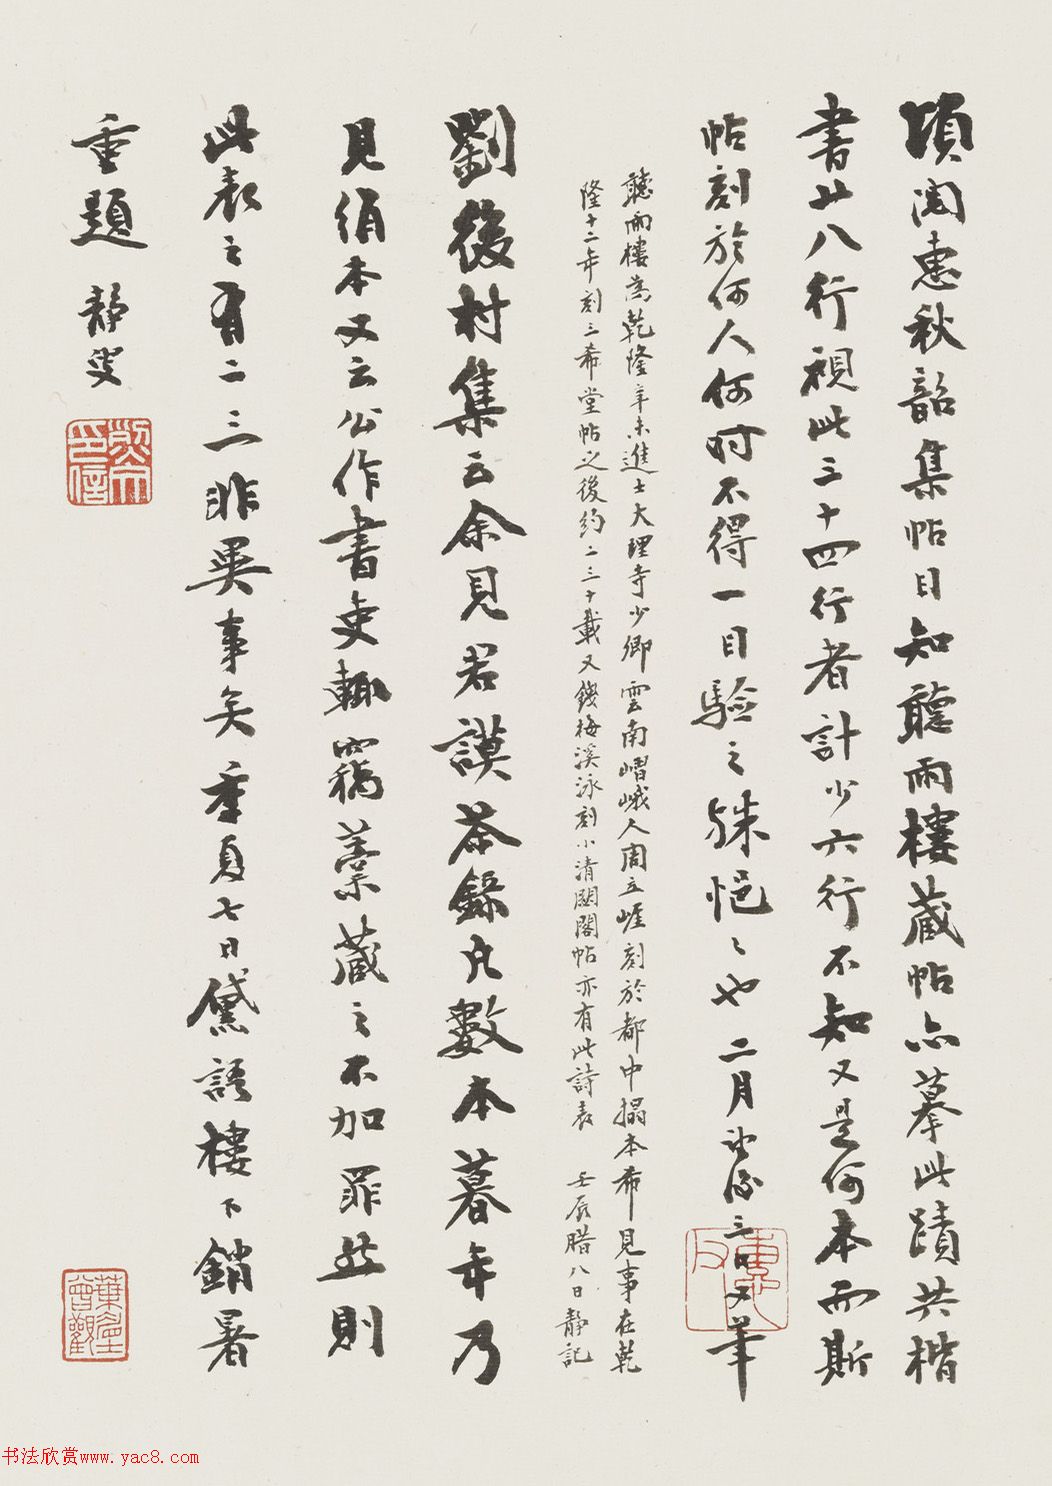 頃閱惠秋韶集帖目知聽雨樓藏帖亦摹此蹟共楷
書廿八行視此三十四行者計少六行不知又是何本而斯
帖刻於何人何時不得一目驗之殊悒〻也二月望後三日又筆
聽雨樓為乾隆辛未進士大理寺少卿雲南嶍峨人周立崖刻於都中搨本希見事在乾
隆十二年刻三希堂帖之後約二三十載又錢梅溪泳刻小清閟閣帖亦有此詩表 壬辰腊八日靜記
劉後村集云余見君謨茶錄凡數本暮年乃
見絹本又云公作書吏輒竊藁藏之不加罪然則
此表之有二三非異事矣季夏七日黛語樓下銷暑
重題 靜叟
葉恭曾觀
书法欣赏www.yac8.com